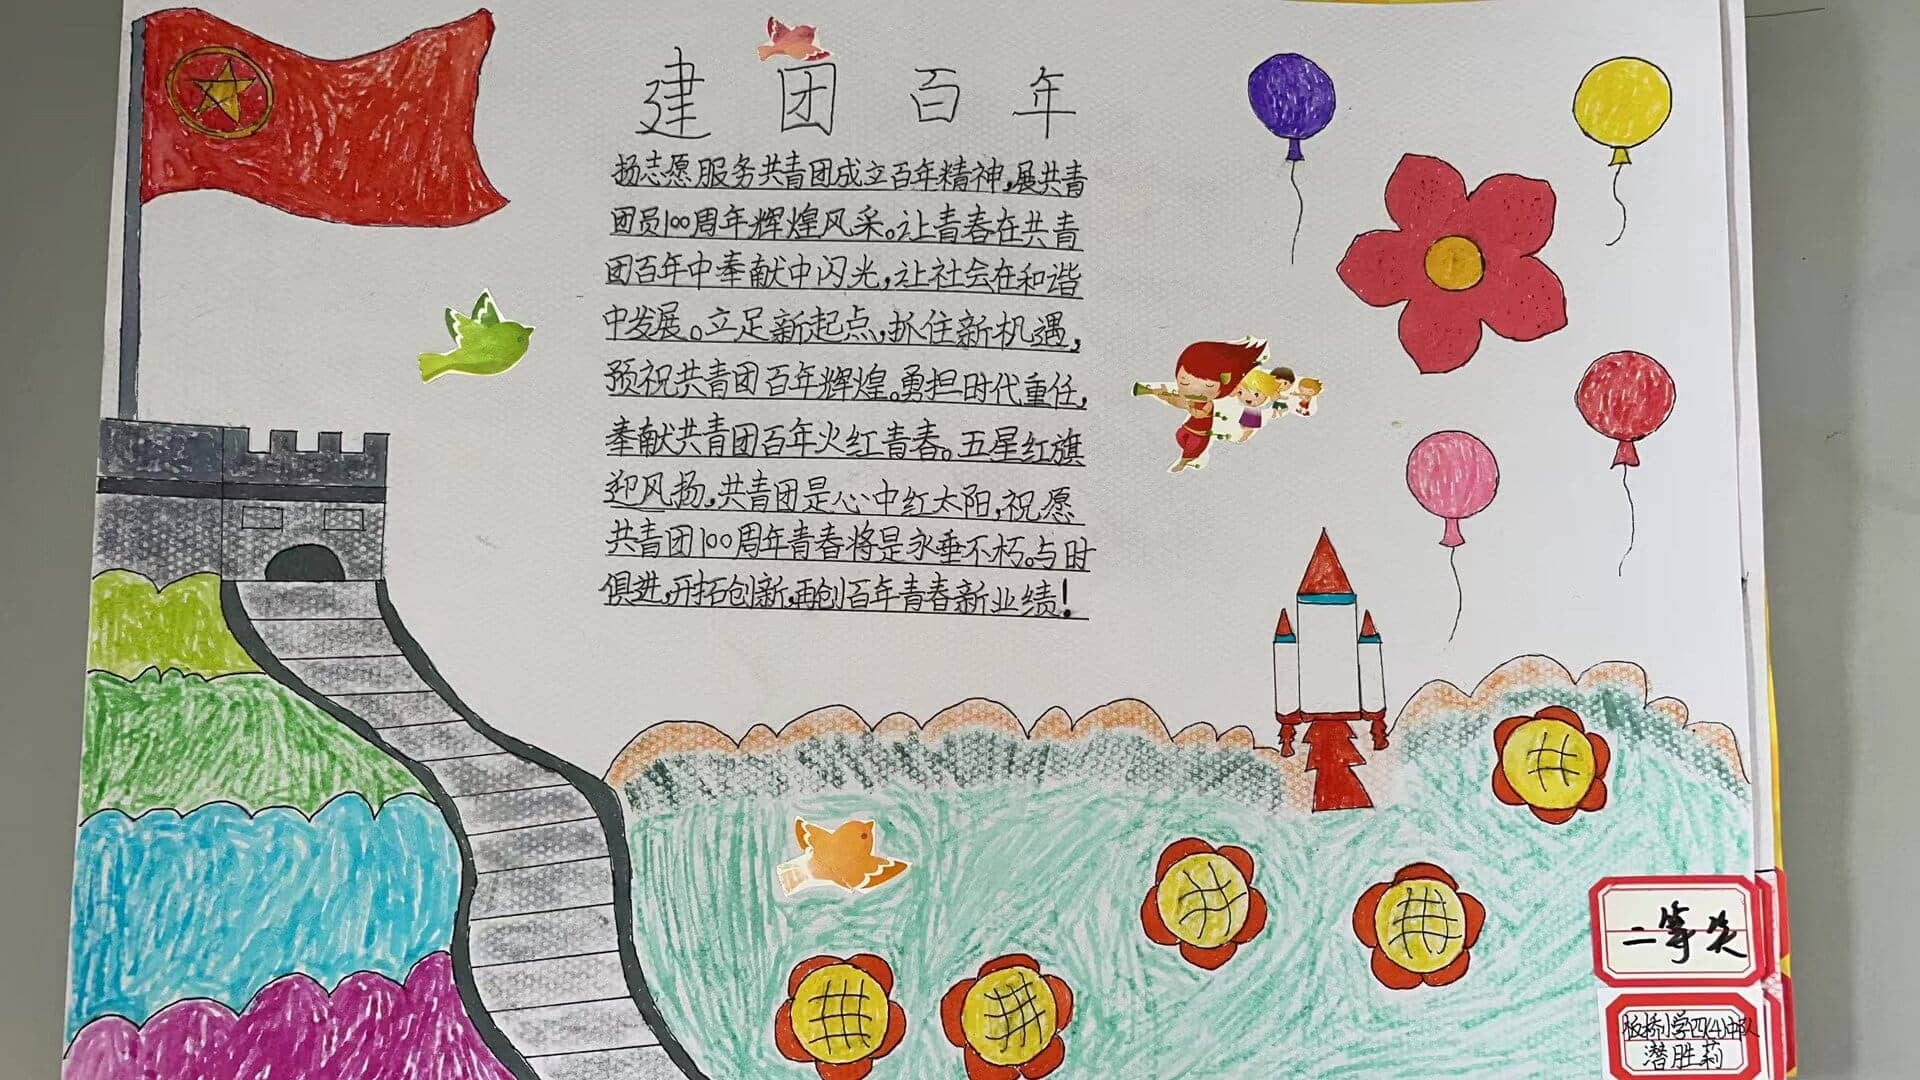 建团百年
扬志愿服务共青团成立百年精神,展共青
团员100周年辉煌风采。让青春在共青
团百年中奉献中闪光,让社会在和谐
中发展。立足新起点,抓住新机遇,
预祝共青团百年辉煌。勇担时代重任,
奉献共青团百年火红青春。五星红旗
迎风扬,共青团是心中红太阳,祝愿
共青团100周年青春将是永垂不朽。与时
俱进,开拓创新,再创百年青春新业绩!
二等奖
板桥小学四(4)中队
潜胜莉